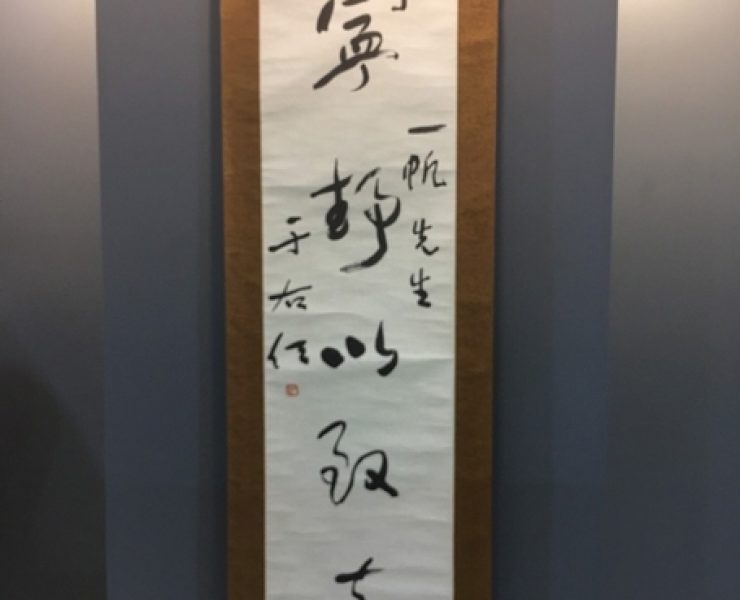 一帆先生
寧靜以致
于右任